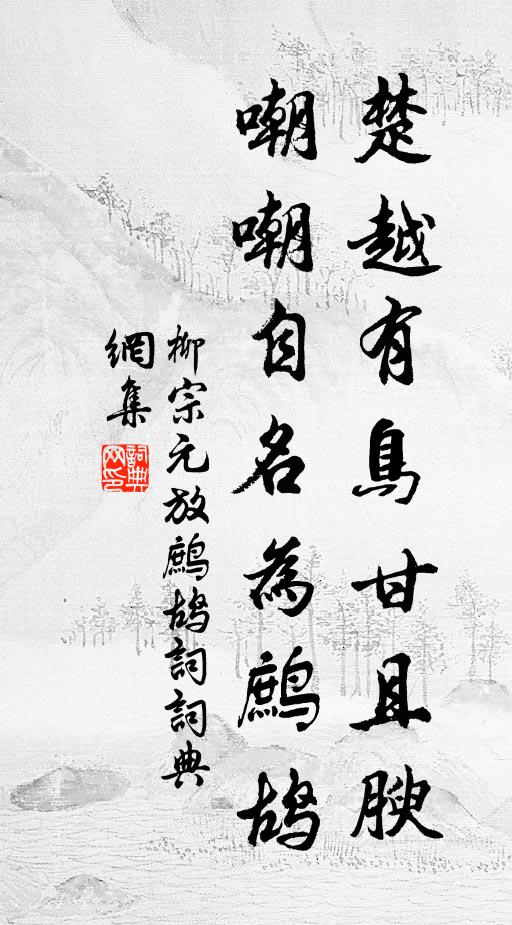 楚越有鳥甘且腴
嘲嘲自名為鷓鴣
柳宗元放鷓鴣詞詞典
網集
詞典網印